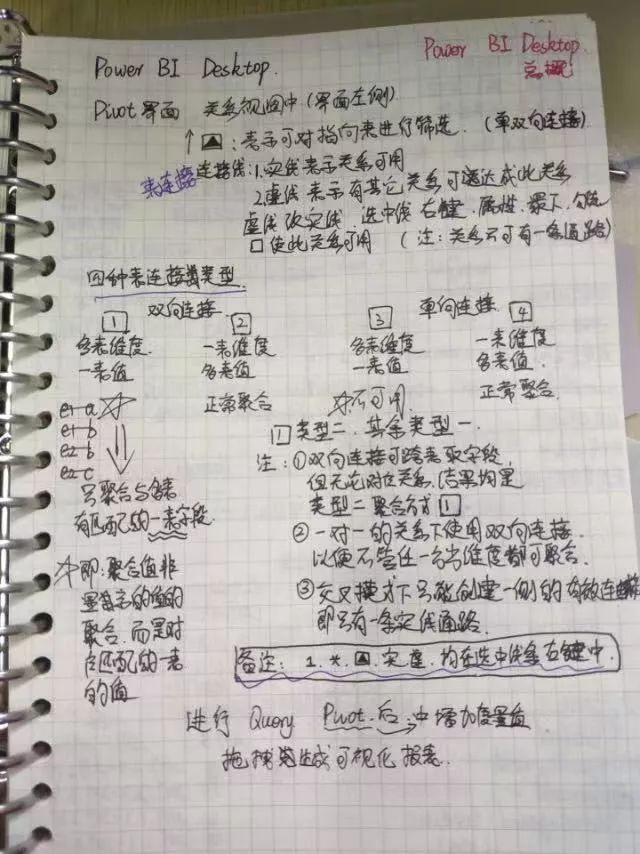 Power BI Desktop.
Power BI Desktop.
总概
Pivot界面 关系视图中(界面左侧)
↑▲:表示可对指向表进行筛选.(单双向连接)
表连接 连接线:1.实线表示关系可用
2.虚线表示有其它关系可达成此关系
虚线改实线.选中线.右键.属性.最下.勾选
□使此关系可用 (注:关系只可有一条通路)
四种表连接类型.
双向连接. 单向连接.
1 2 3 4
多表维度. 一表维度 多表维度 一表维度
一表值 多表值. 一表值 多表值.
正常聚合 ☆不可用. 正常聚合.
e1-a ☆
e1-b
e2-b
e2-c
只聚合与多表
有匹配的一表字段
☆即:聚合值非
的
聚合.而是对
匹配的一表
的值
1 类型二.其余类型一.
注:①双向连接可跨表取字段,
但无论对应关系.结果均是
类型二聚合方式1
②一对一的关系下使用双向连接.
以便不管任一名当维度都可聚合.
③交叉模式下只能创建一侧的有效连接
即只有一条实线通路.
备注: 1.*.▲.实虚.均在选中线条右键中.
进行 Query Pivot.后.中增加度量值
拖拽 生成可视化报表.